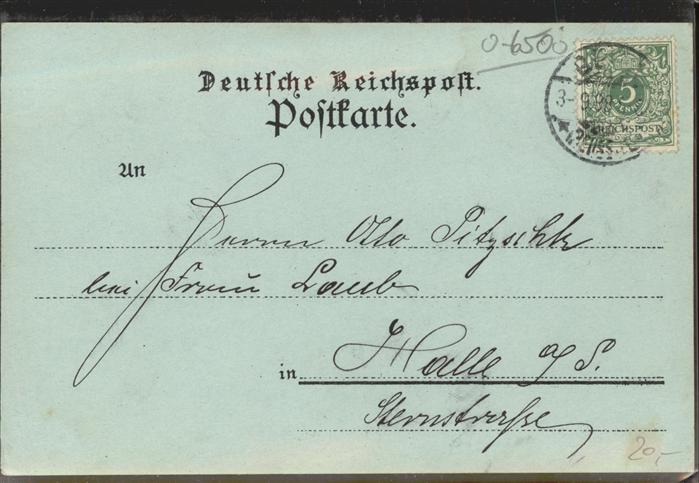 0-6500
Deutsche Reichspost.
Postkarte.
An
5
REICHSPOST
Herrn Otto
bei Frau Laub
in Halle a/S.
Sternstraße
20,-